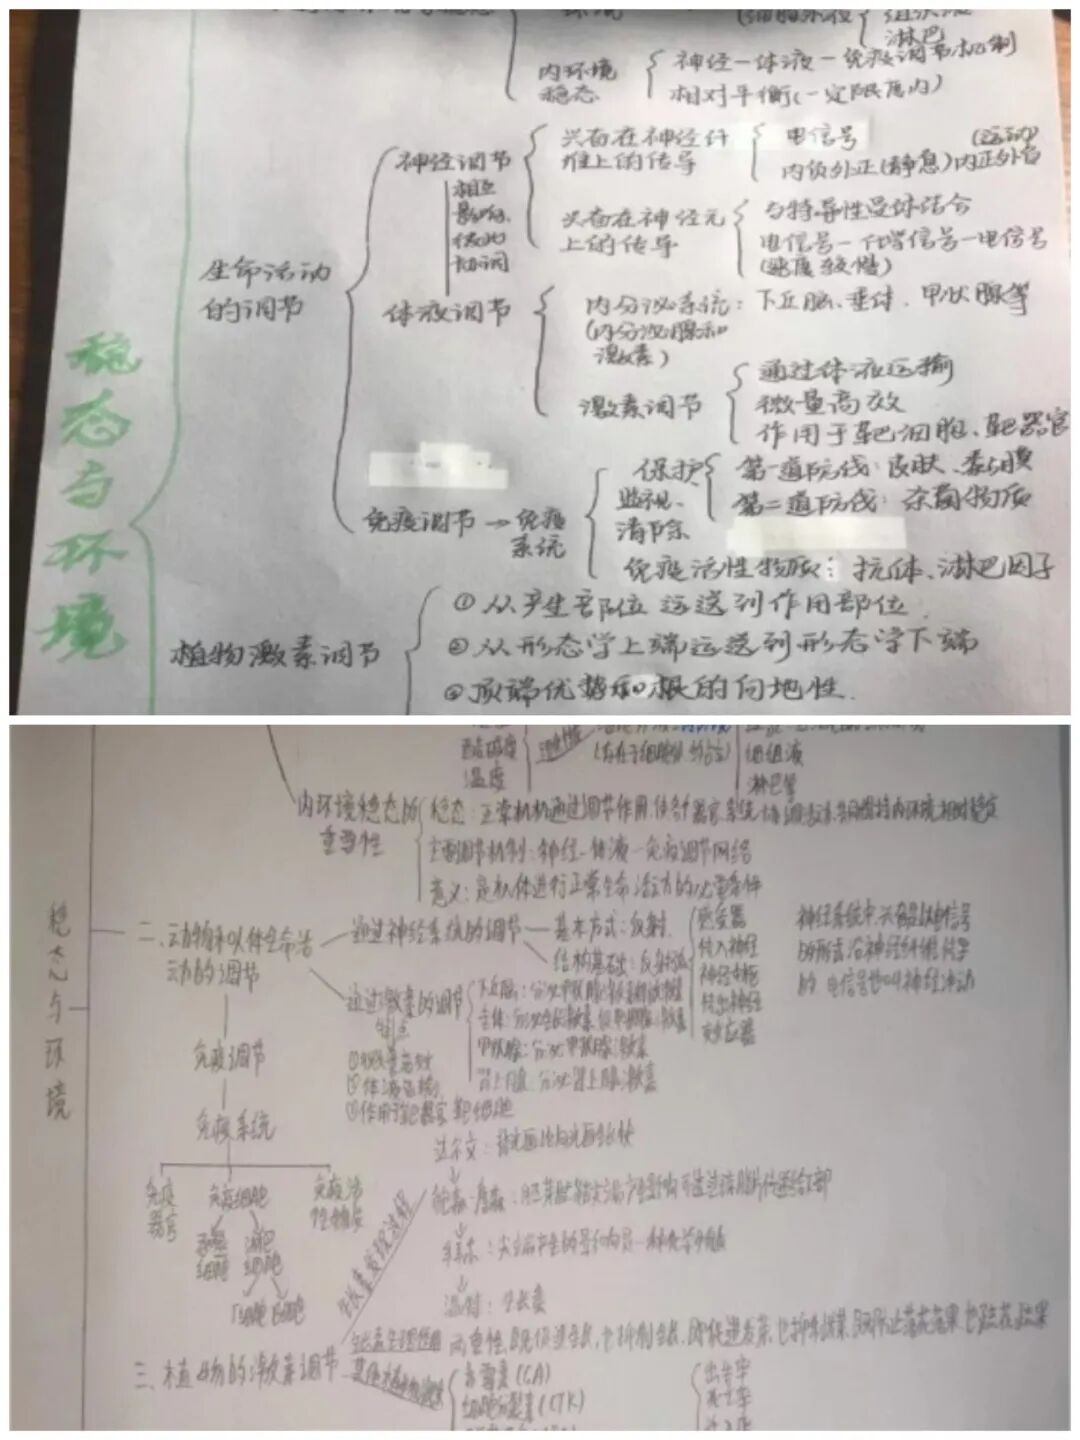 淋巴
内环境
稳态
神经一体液一免疫调节机制
相对平衡(一定限度内)
生命活动
的调节
神经调节
相互
影响、
彼此
协调
兴奋在神经纤
维上的传导
电信号
(运动)
内负外正(静息)内正外负
兴奋在神经元
上的传导
与特异性受体结合
电信号一化学信号一电信号
(速度较慢)
体液调节
内分泌系统:下丘脑、垂体、甲状腺等
(内分泌腺和
激素)
激素调节
通过体液运输
微量高效
作用于靶细胞、靶器官
免疫调节→免疫
系统
保护
监视、
清除
第一道防线:皮肤、黏膜
第二道防线:杀菌物质
免疫活性物质:抗体、淋巴因子
稳态与环境
植物激素调节
①从产生部位运送到作用部位
②从形态学上端运送到形态学下端
顶端优势和根的向地性.
酸碱度
温度
组织液
内环境稳态的
重要性
稳态:正常机体通过调节作用,使各个器官、系统协调活动,共同维持内环境相对稳定
主要调节机制:神经一体液一免疫调节网络
意义:是机体进行正常生命活动的必要条件
稳态与环境
二、动物和人体生命活
动的调节
通过神经系统的调节
基本方式:反射
结构基础:反射弧
感受器
传入神经
神经中枢
传出神经
效应器
神经系统中,兴奋是以电信号
的形式沿神经纤维传导
的 电信号也叫神经冲动
通过激素的调节
特点
①微量高效
②体液运输
③作用于靶器官、靶细胞
甲状腺:分泌甲状腺激素
肾上腺:分泌肾上腺激素
免疫调节
免疫系统
免疫
器官
免疫细胞
免疫活
性物质
吞噬
细胞
淋巴
细胞
T细胞 B细胞
生长素发现过程
达尔文:
温特:生长素
三、植物的激素调节
赤霉素(GA)
细胞分裂素(CTK)
出生率
死亡率